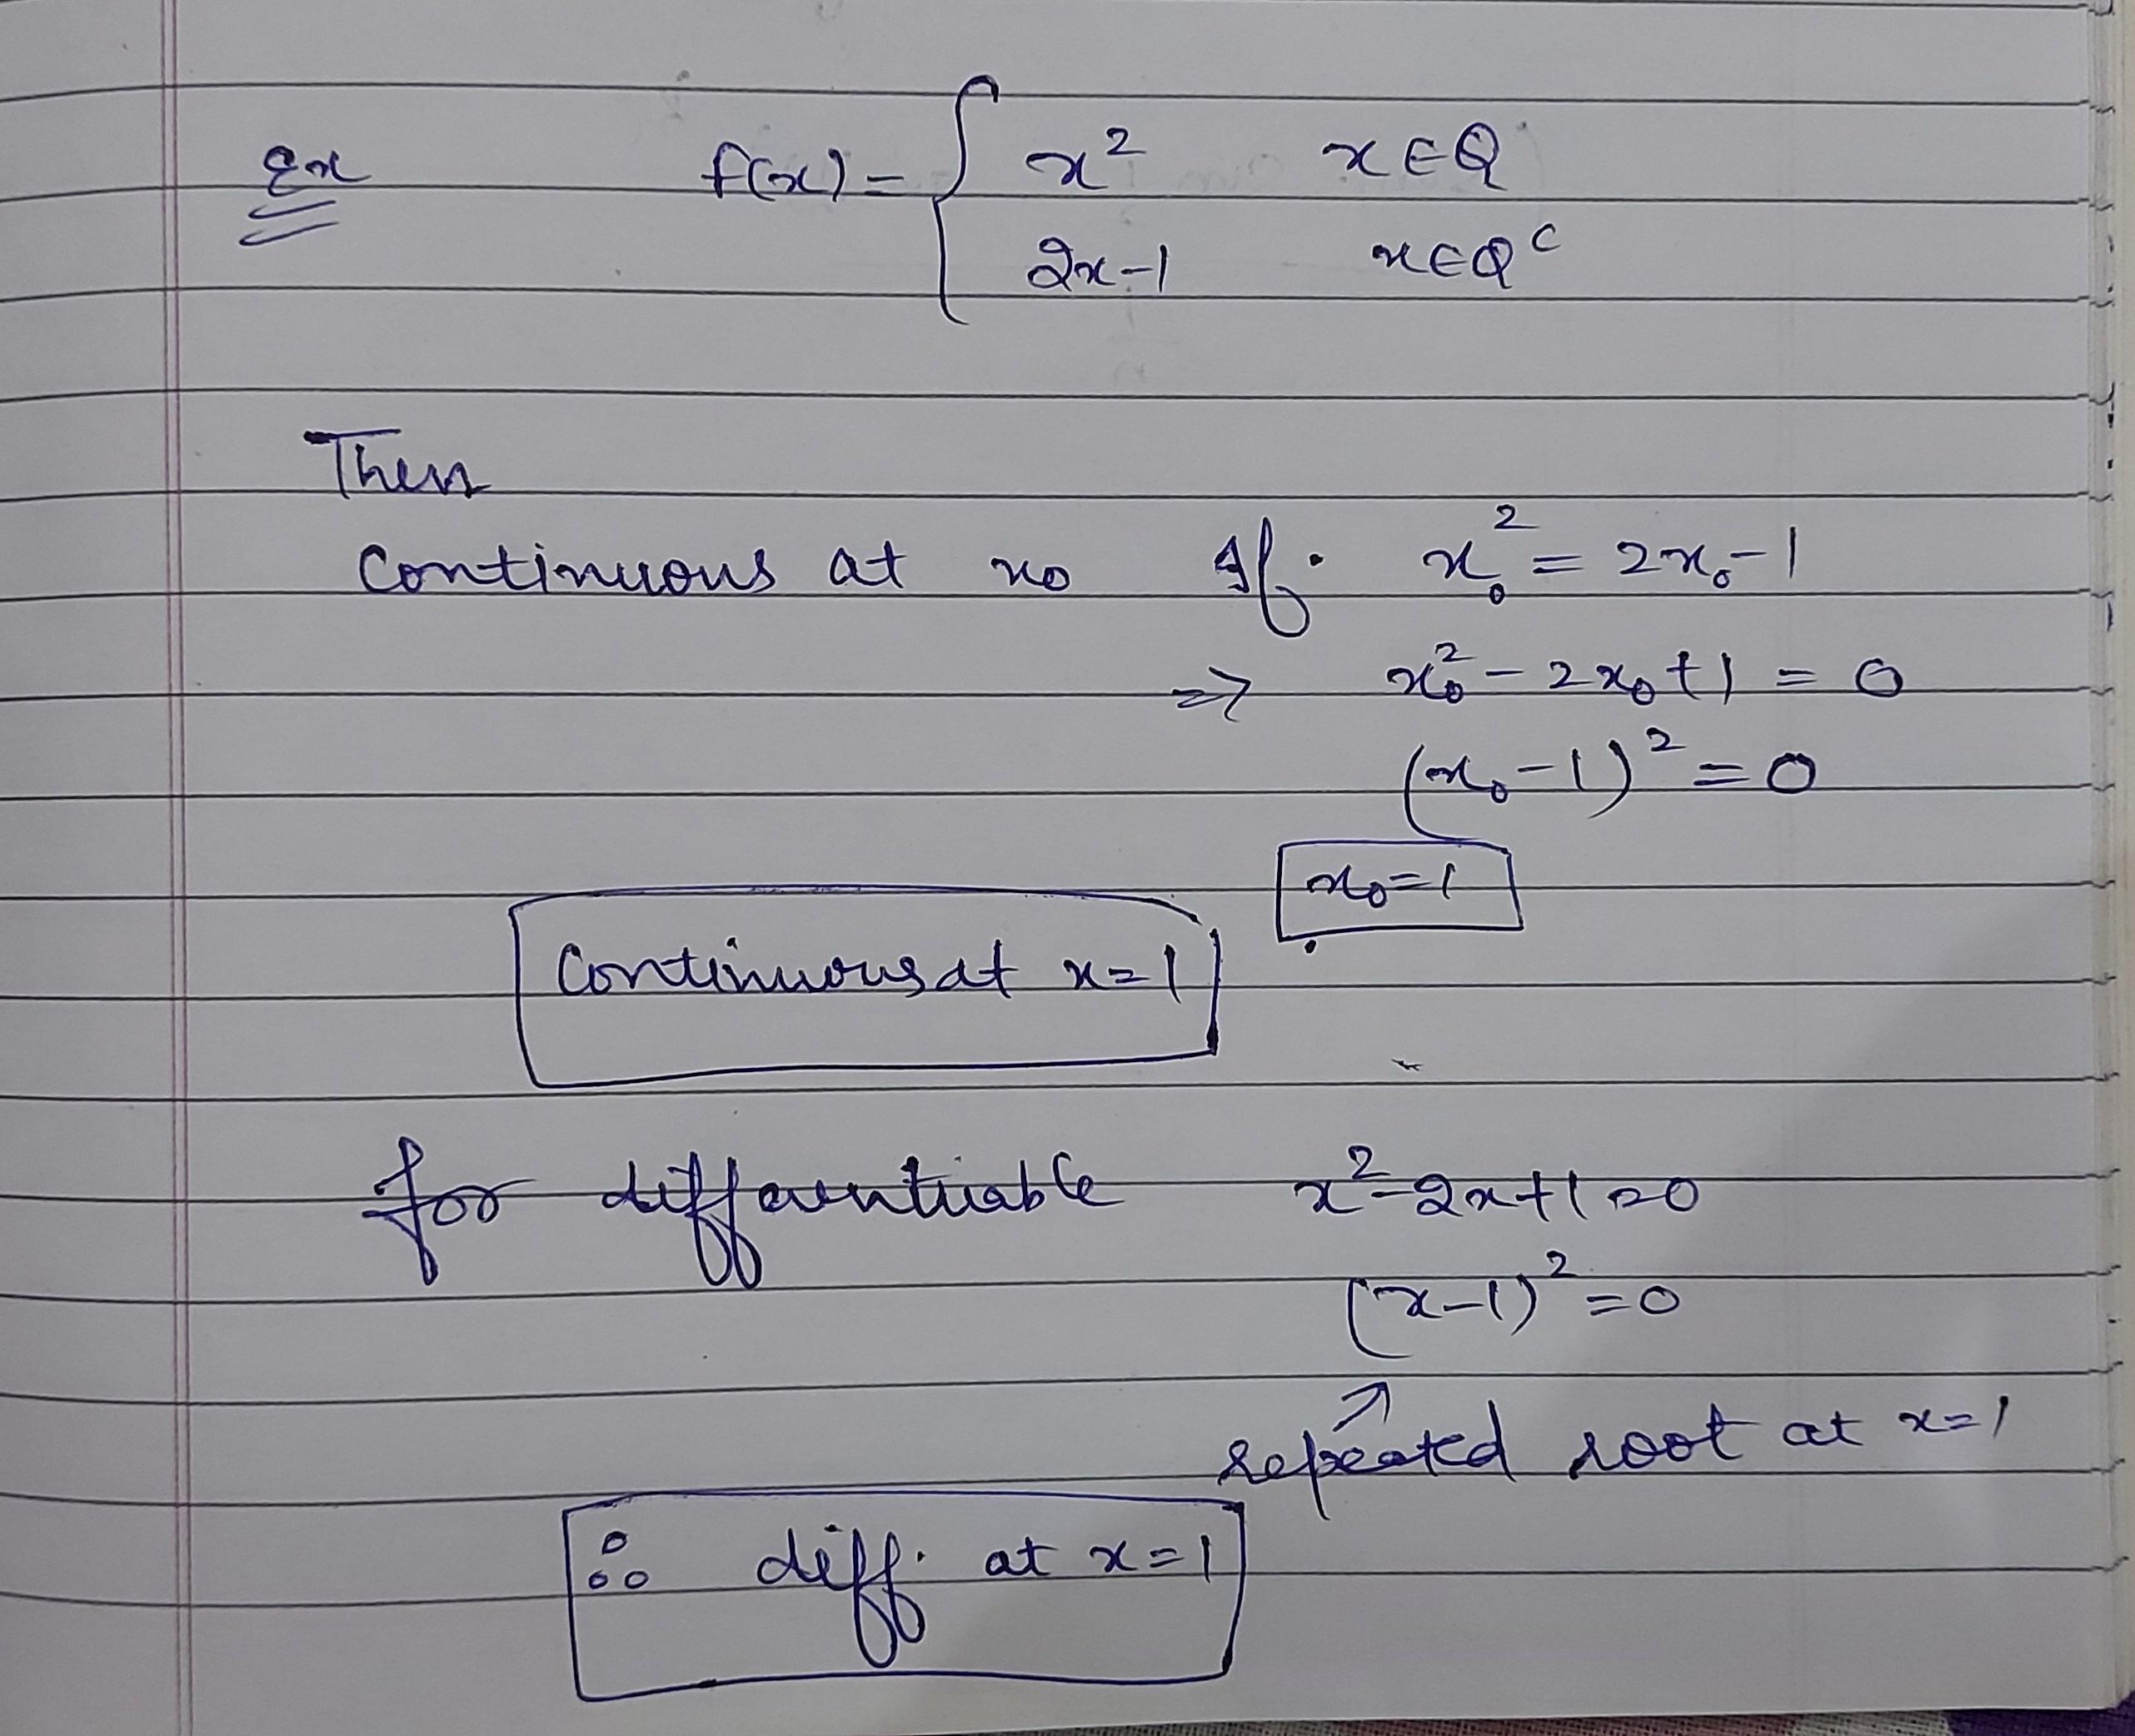 Ex f(x) = { x² x∈Q
2x-1 x∈Qᶜ
Then
Continuous at x₀ If. x₀² = 2x₀-1
=> x₀² - 2x₀ + 1 = 0
(x₀-1)² = 0
x₀=1
Continuous at x=1
for differentiable x²-2x+1=0
(x-1)² = 0
↗
repeated root at x=1
∴ diff. at x=1